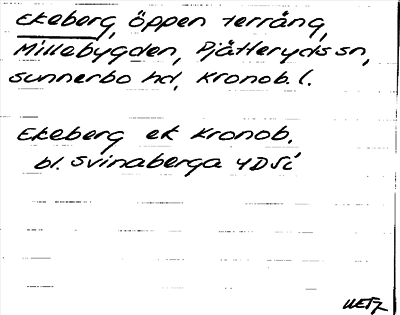 Ekeberg, öppen terräng,
Millebygden, Pjätteryds sn,
sunnerbo hd, Kronob. l.
Ekeberg ek Kronob.
bl. Svinaberga 4D5i